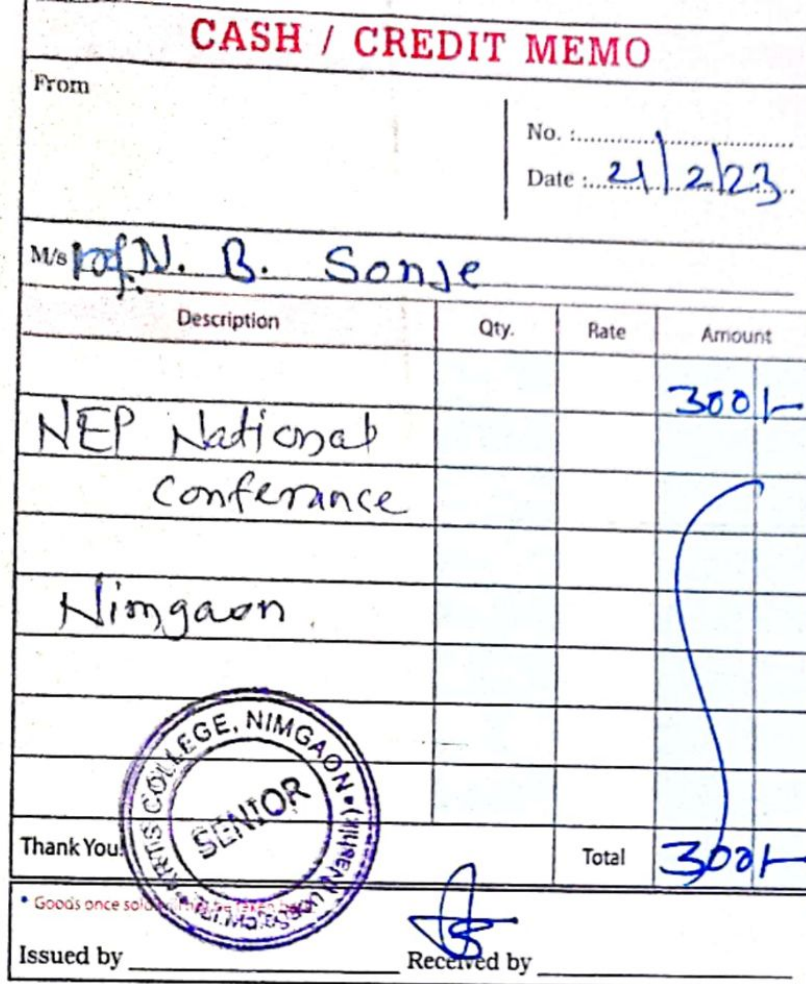 CASH / CREDIT MEMO
From
No. :
Date : 21/2/23
M/s Prof. N. B. Sonje
Description Qty. Rate Amount
300/-
NEP National
Conferance
Nimgaon
ARTS COLLEGE, NIMGAON
SENIOR
Thank You! Total 300/-
* Goods once sold
Issued by Received by